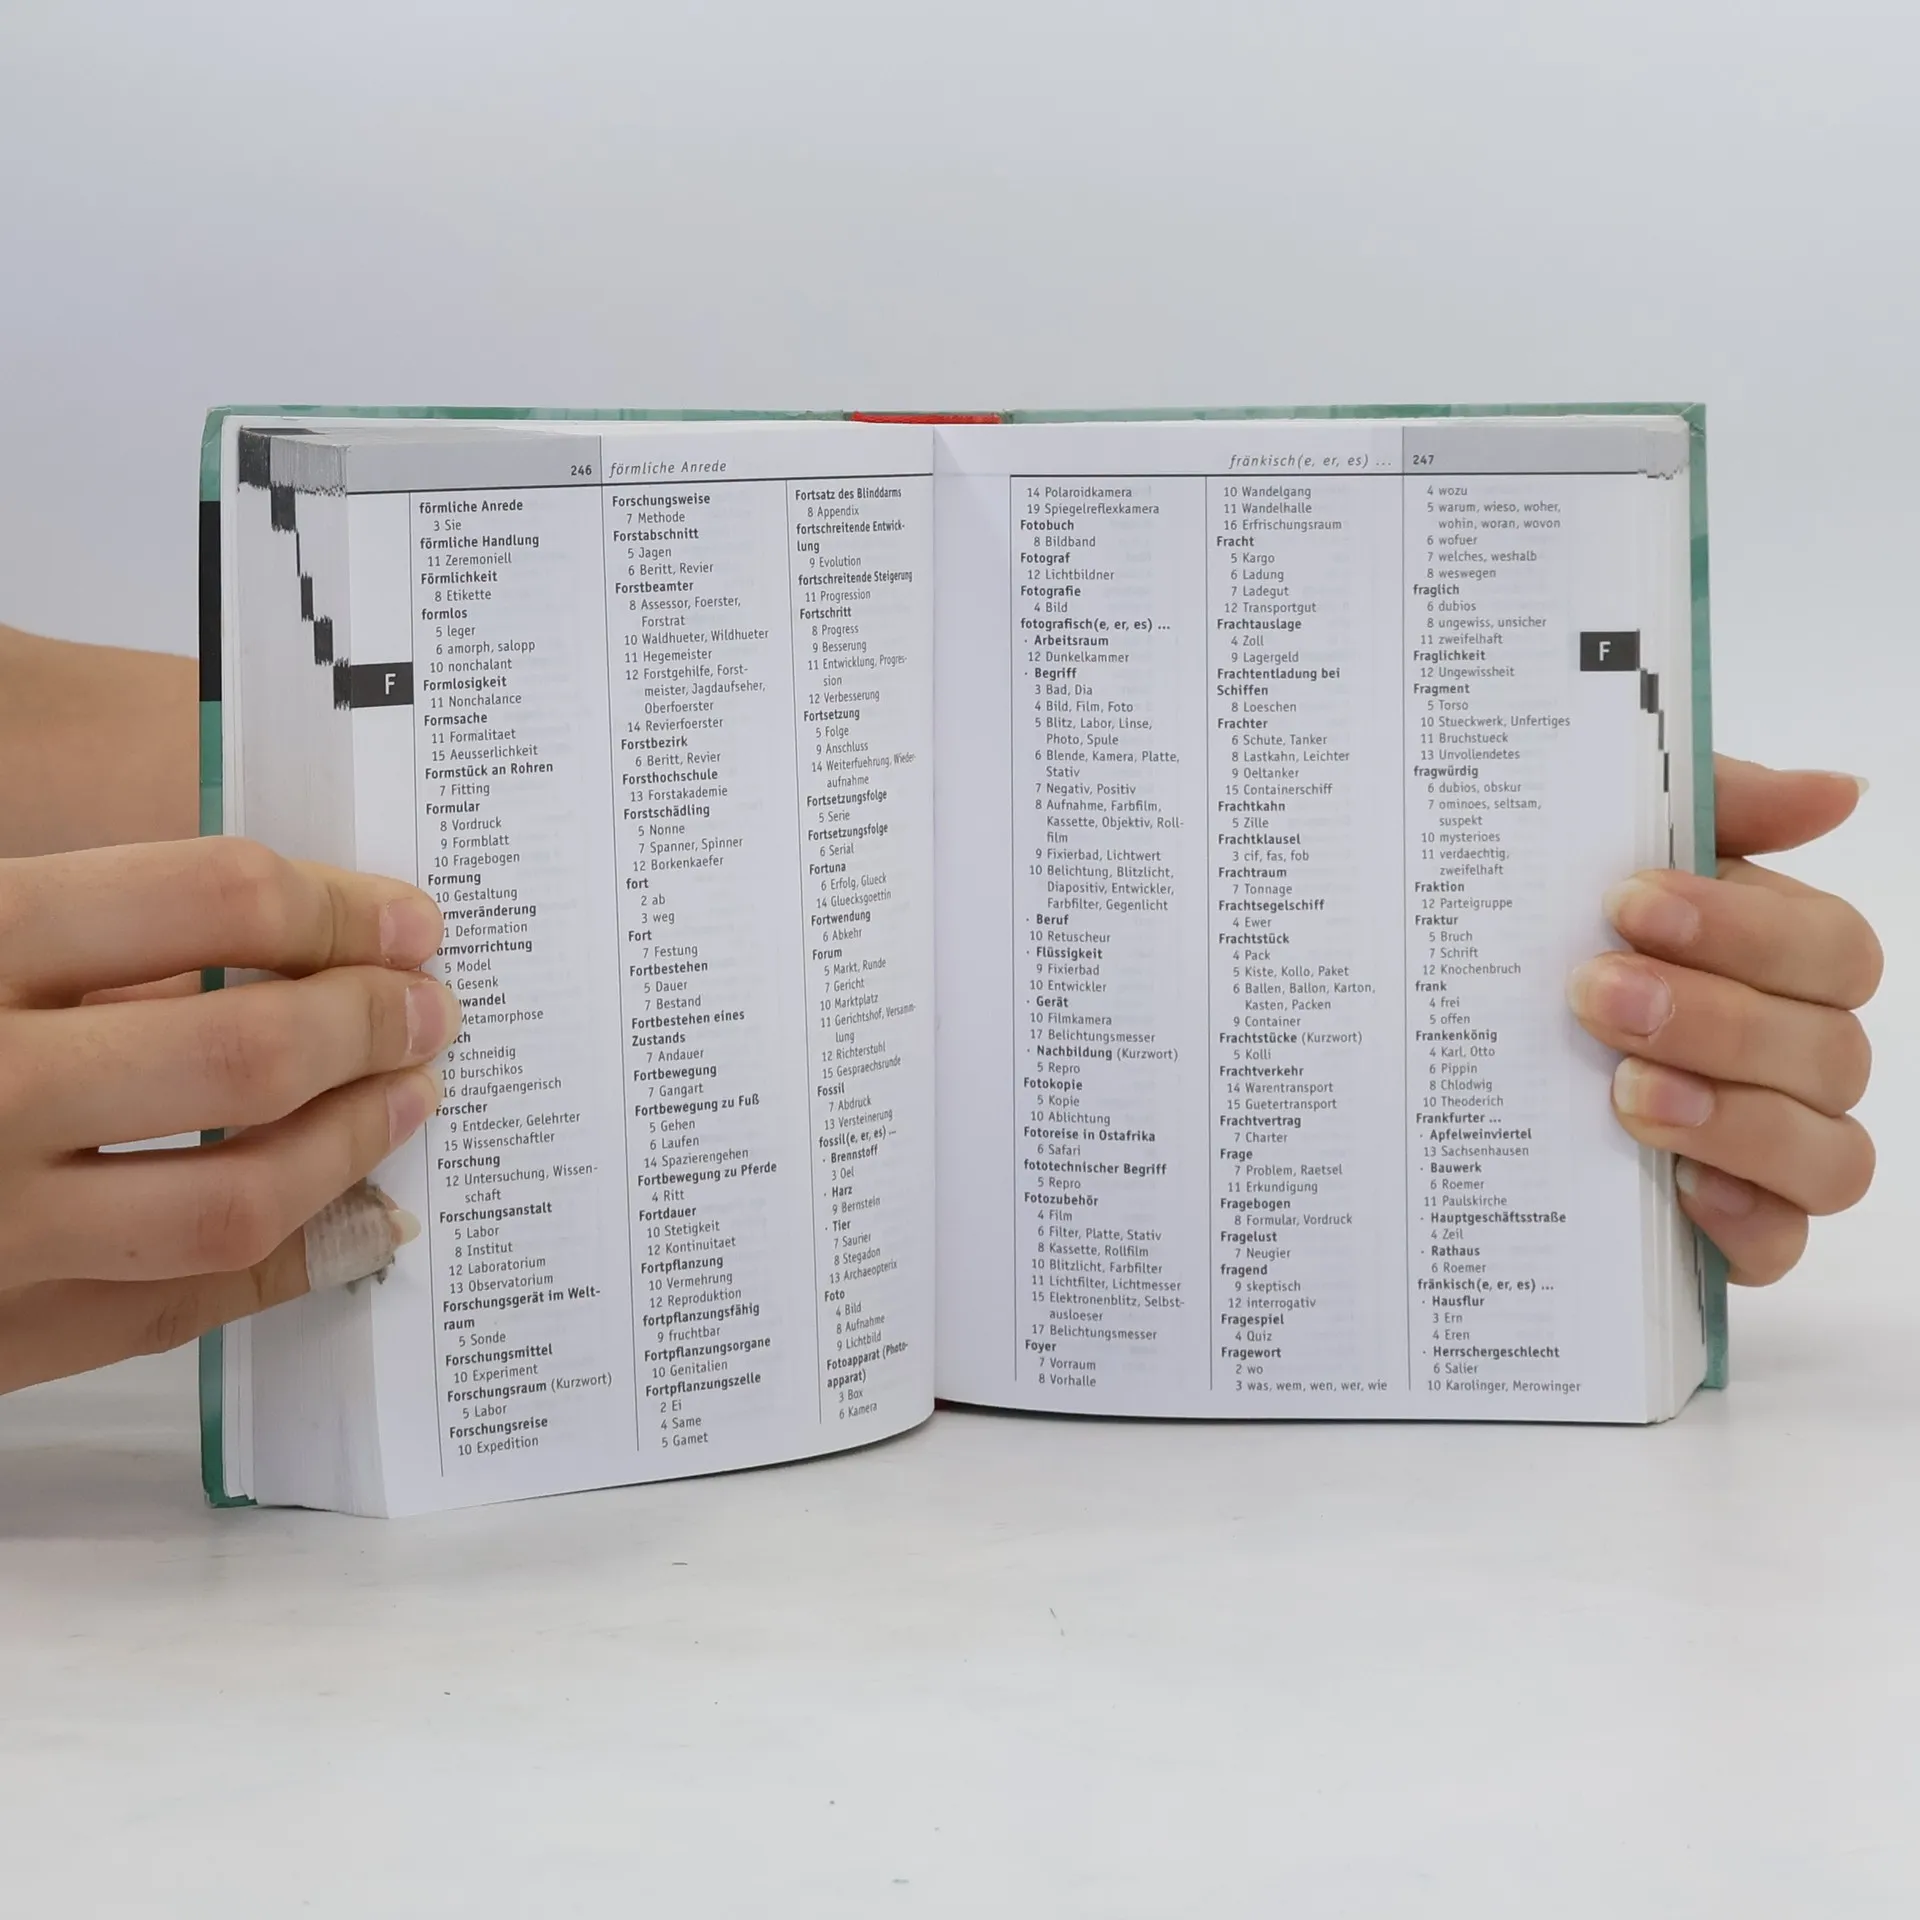 246 förmliche Anrede
F
förmliche Anrede
3 Sie
förmliche Handlung
11 Zeremoniell
Förmlichkeit
8 Etikette
formlos
5 leger
6 amorph, salopp
10 nonchalant
Formlosigkeit
11 Nonchalance
Formsache
11 Formalitaet
15 Aeusserlichkeit
Formstück an Rohren
7 Fitting
Formular
8 Vordruck
9 Formblatt
10 Fragebogen
Formung
10 Gestaltung
rmveränderung
1 Deformation
ormvorrichtung
5 Model
6 Gesenk
wandel
Metamorphose
sch
9 schneidig
10 burschikos
16 draufgaengerisch
Forscher
9 Entdecker, Gelehrter
15 Wissenschaftler
Forschung
12 Untersuchung, Wissen-
schaft
Forschungsanstalt
5 Labor
8 Institut
12 Laboratorium
13 Observatorium
Forschungsgerät im Welt-
raum
5 Sonde
Forschungsmittel
10 Experiment
Forschungsraum (Kurzwort)
5 Labor
Forschungsreise
10 Expedition
Forschungsweise
7 Methode
Forstabschnitt
5 Jagen
6 Beritt, Revier
Forstbeamter
8 Assessor, Foerster,
Forstrat
10 Waldhueter, Wildhueter
11 Hegemeister
12 Forstgehilfe, Forst-
meister, Jagdaufseher,
Oberfoerster
14 Revierfoerster
Forstbezirk
6 Beritt, Revier
Forsthochschule
13 Forstakademie
Forstschädling
5 Nonne
7 Spanner, Spinner
12 Borkenkaefer
fort
2 ab
3 weg
Fort
7 Festung
Fortbestehen
5 Dauer
7 Bestand
Fortbestehen eines
Zustands
7 Andauer
Fortbewegung
7 Gangart
Fortbewegung zu Fuß
5 Gehen
6 Laufen
14 Spazierengehen
Fortbewegung zu Pferde
4 Ritt
Fortdauer
10 Stetigkeit
12 Kontinuitaet
Fortpflanzung
10 Vermehrung
12 Reproduktion
fortpflanzungsfähig
9 fruchtbar
Fortpflanzungsorgane
10 Genitalien
Fortpflanzungszelle
2 Ei
4 Same
5 Gamet
Fortsatz des Blinddarms
8 Appendix
fortschreitende Entwick-
lung
9 Evolution
fortschreitende Steigerung
11 Progression
Fortschritt
8 Progress
9 Besserung
11 Entwicklung, Progres-
sion
12 Verbesserung
Fortsetzung
5 Folge
9 Anschluss
14 Weiterfuehrung, Wieder-
aufnahme
Fortsetzungsfolge
5 Serie
Fortsetzungsfolge
6 Serial
Fortuna
6 Erfolg, Glueck
14 Gluecksgoettin
Fortwendung
6 Abkehr
Forum
5 Markt, Runde
7 Gericht
10 Marktplatz
11 Gerichtshof, Versamm-
lung
12 Richterstuhl
15 Gespraechsrunde
Fossil
7 Abdruck
13 Versteinerung
fossil(e, er, es) ...
· Brennstoff
3 Oel
· Harz
9 Bernstein
· Tier
7 Saurier
8 Stegadon
13 Archaeopterix
Foto
4 Bild
8 Aufnahme
9 Lichtbild
Fotoapparat (Photo-
apparat)
3 Box
6 Kamera
fränkisch(e, er, es) ... 247
14 Polaroidkamera
19 Spiegelreflexkamera
Fotobuch
8 Bildband
Fotograf
12 Lichtbildner
Fotografie
4 Bild
fotografisch(e, er, es) ...
· Arbeitsraum
12 Dunkelkammer
· Begriff
3 Bad, Dia
4 Bild, Film, Foto
5 Blitz, Labor, Linse,
Photo, Spule
6 Blende, Kamera, Platte,
Stativ
7 Negativ, Positiv
8 Aufnahme, Farbfilm,
Kassette, Objektiv, Roll-
film
9 Fixierbad, Lichtwert
10 Belichtung, Blitzlicht,
Diapositiv, Entwickler,
Farbfilter, Gegenlicht
· Beruf
10 Retuscheur
· Flüssigkeit
9 Fixierbad
10 Entwickler
· Gerät
10 Filmkamera
17 Belichtungsmesser
· Nachbildung (Kurzwort)
5 Repro
Fotokopie
5 Kopie
10 Ablichtung
Fotoreise in Ostafrika
6 Safari
fototechnischer Begriff
5 Repro
Fotozubehör
4 Film
6 Filter, Platte, Stativ
8 Kassette, Rollfilm
10 Blitzlicht, Farbfilter
11 Lichtfilter, Lichtmesser
15 Elektronenblitz, Selbst-
ausloeser
17 Belichtungsmesser
Foyer
7 Vorraum
8 Vorhalle
10 Wandelgang
11 Wandelhalle
16 Erfrischungsraum
Fracht
5 Kargo
6 Ladung
7 Ladegut
12 Transportgut
Frachtauslage
4 Zoll
9 Lagergeld
Frachtentladung bei
Schiffen
8 Loeschen
Frachter
6 Schute, Tanker
8 Lastkahn, Leichter
9 Oeltanker
15 Containerschiff
Frachtkahn
5 Zille
Frachtklausel
3 cif, fas, fob
Frachtraum
7 Tonnage
Frachtsegelschiff
4 Ewer
Frachtstück
4 Pack
5 Kiste, Kollo, Paket
6 Ballen, Ballon, Karton,
Kasten, Packen
9 Container
Frachtstücke (Kurzwort)
5 Kolli
Frachtverkehr
14 Warentransport
15 Guetertransport
Frachtvertrag
7 Charter
Frage
7 Problem, Raetsel
11 Erkundigung
Fragebogen
8 Formular, Vordruck
Fragelust
7 Neugier
fragend
9 skeptisch
12 interrogativ
Fragespiel
4 Quiz
Fragewort
2 wo
3 was, wem, wen, wer, wie
4 wozu
5 warum, wieso, woher,
wohin, woran, wovon
6 wofuer
7 welches, weshalb
8 weswegen
fraglich
6 dubios
8 ungewiss, unsicher
11 zweifelhaft
Fraglichkeit
12 Ungewissheit
Fragment
5 Torso
10 Stueckwerk, Unfertiges
11 Bruchstueck
13 Unvollendetes
fragwürdig
6 dubios, obskur
7 ominoes, seltsam,
suspekt
10 mysterioes
11 verdaechtig,
zweifelhaft
Fraktion
12 Parteigruppe
Fraktur
5 Bruch
7 Schrift
12 Knochenbruch
frank
4 frei
5 offen
Frankenkönig
4 Karl, Otto
6 Pippin
8 Chlodwig
10 Theoderich
Frankfurter ...
· Apfelweinviertel
13 Sachsenhausen
· Bauwerk
6 Roemer
11 Paulskirche
· Hauptgeschäftsstraße
4 Zeil
· Rathaus
6 Roemer
fränkisch(e, er, es) ...
· Hausflur
3 Ern
4 Eren
· Herrschergeschlecht
6 Salier
10 Karolinger, Merowinger
F